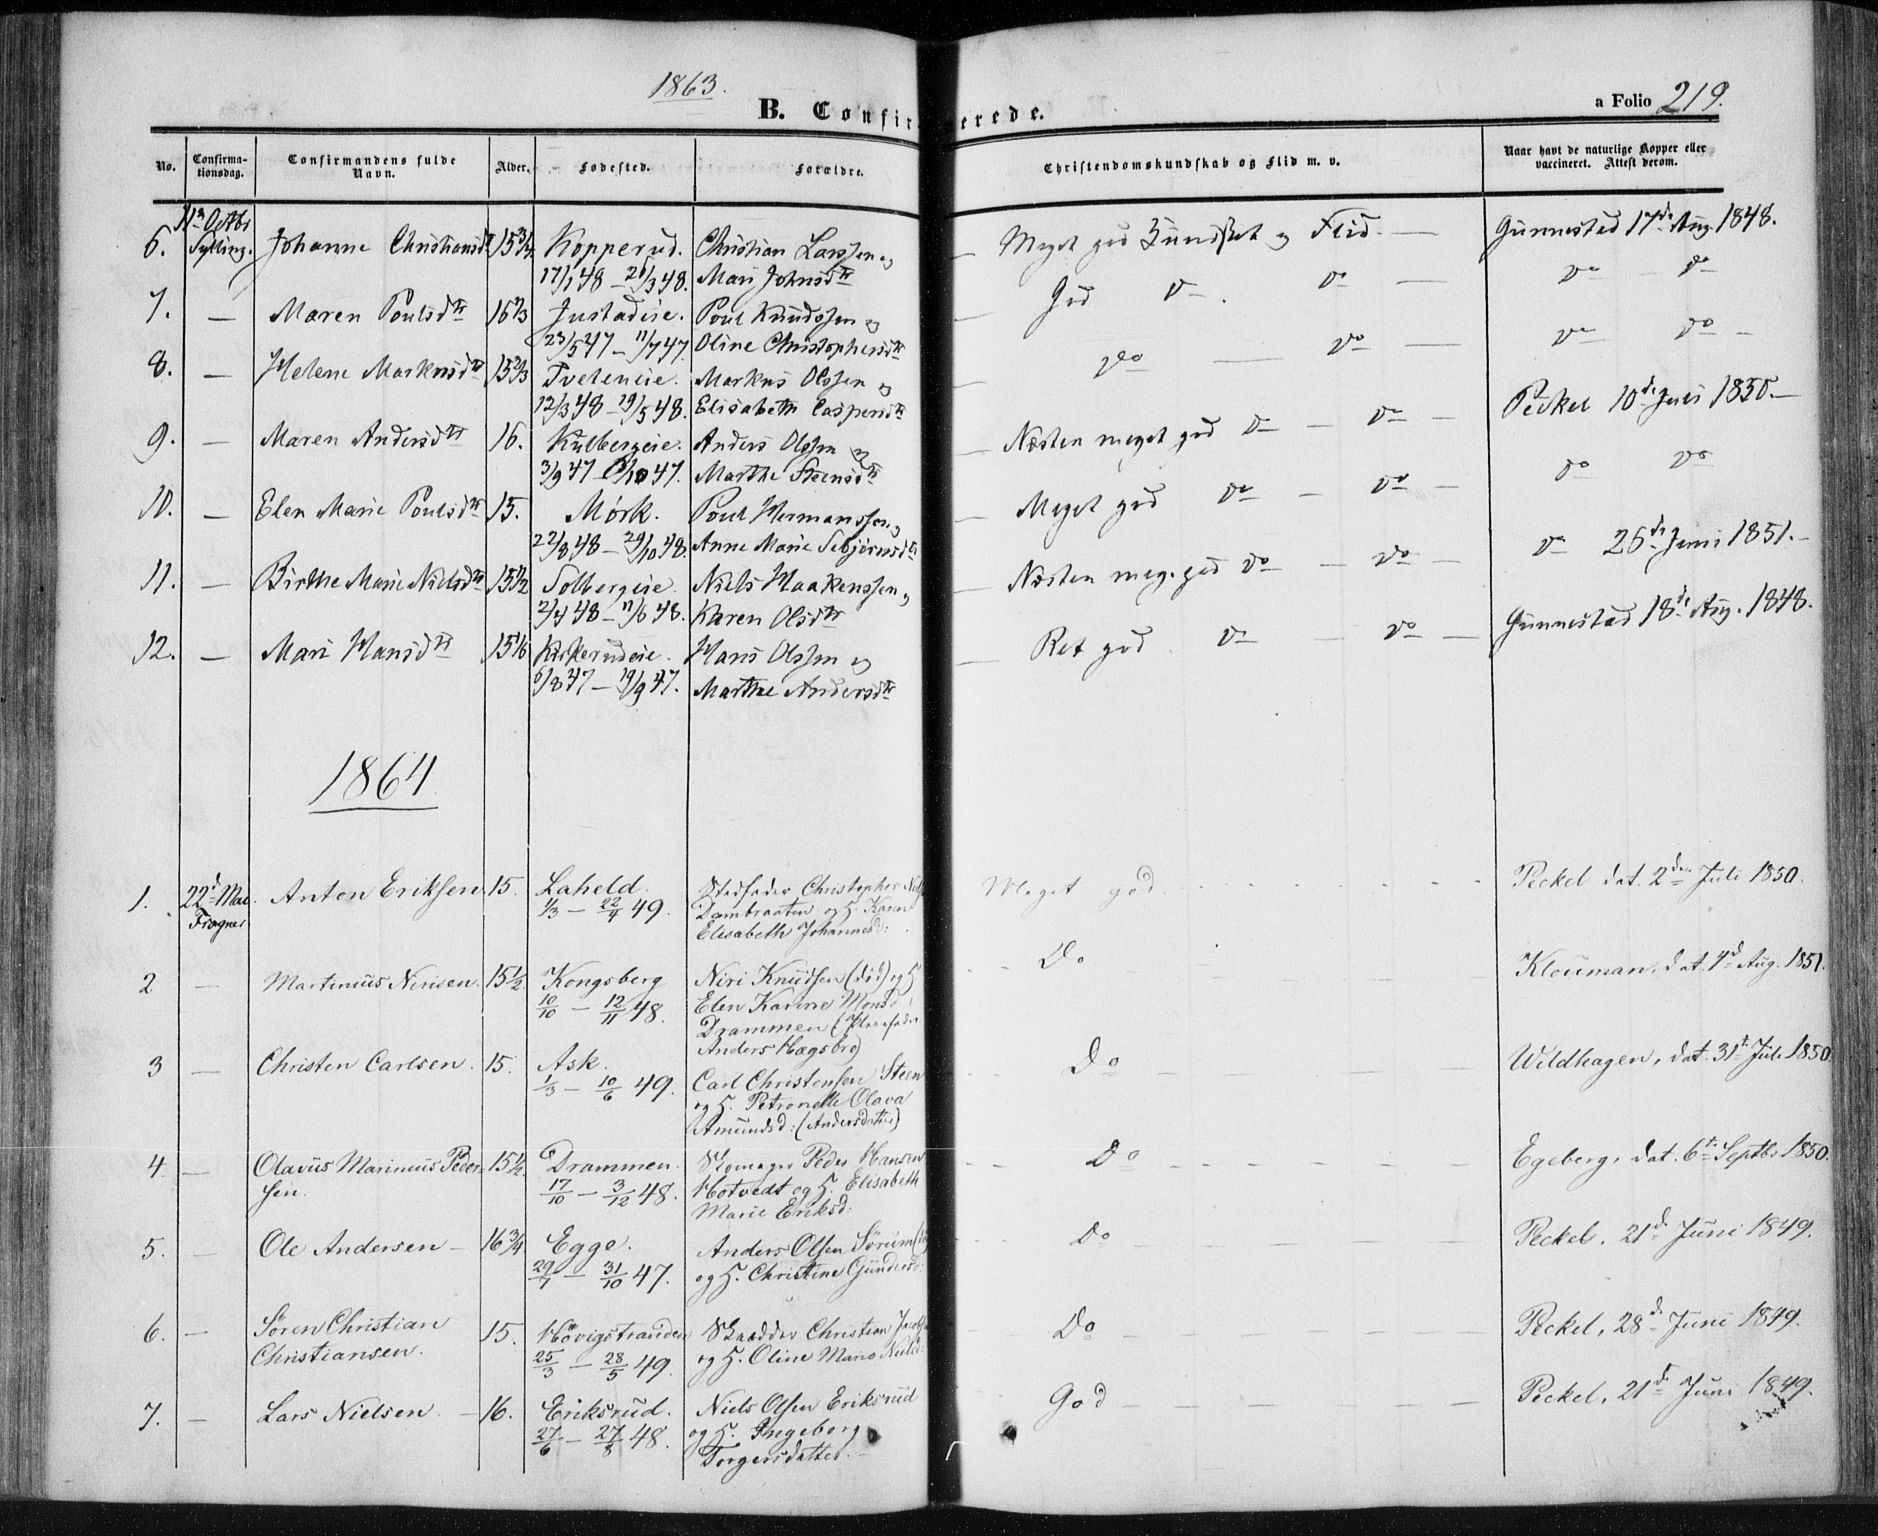 1863.
B. Confirmerede.
a Folio 219.
No.
Confirmationsdag.
Confirmandens fulde Navn.
Alder.
Fødested.
Forældre.
Christendomskundskab og Flid m. v.
Naar havt de naturlige Kopper eller vaccineret. Attest derom.
6. Sylling. Johanne Christiansdtr 15 3/4 Kopperud. Christian Larssen og Meget god Kundskab og Flid. — Gunnestad 17de Aug. 1848.
17/1 48 — 48. Mari Johnsdtr
7. — Maren Poulsdtr 16 Justadeie. Poul Knudssen og God do . do — do — do
23/5 47 — 11/7 47. Oline Christophersdtr
8. — Helene Markusdtr 15 2/3 Tveteneie. Markus Olssen og do — do — do do —
12/3 48 — 19/5 48. Elisabeth Caspersdtr
9. — Maren Andersdtr 16. Kulbergeie. Anders Olssen og Næsten meget god do — do — Peckel 10de Juli 1850. —
3/9 47 47. Marthe Steensdtr
10. — Elen Marie Poulsdtr 15. Mörk. Poul Hermanssen og Meget god do — do — do do
22/8 48 — 29/10 48. Anne Marie
11. — Birthe Marie Nielsdtr 15 1/2 Solbergeie. Niels Haakenssen og Næsten meg. god do — do — do 26de Juni 1851. —
48 — 11/6 48. Karen Olsdtr
12. — Mari Hansdtr 15 1/6 Hans Olssen og Ret god do — do — Gunnestad 18de Aug. 1848.
6/8 47 — 19/9 47. Marthe Andersdtr
1864
1. 22d Mai Anton Eriksen 15. Laheld. Stedfader Christopher Meget god Peckel dat. 2den Juli 1850.
Frogner 1/3 — 22/4 49. Dambraaten og H. Karen
Elisabeth Johannesd:
2 — Martinius Nirisen. 15 1/2 Kongsberg Niri Knudsen (död) og H Do Klouman, dat. Aug. 1851.
10/10 — 12/11 48. Elen Karine
Drammen (Pleiefader
Anders Hægsbro)
3 — Christen Carlsen. 15. Ask. Carl Christensen Steen Do Wildhagen, dat. 31t Juli 1850
1/3 — 10/6 49. og H. Petronelle Olava
Amundsd: (Andersdatter)
4. — Olavus Marinius Peder- 15 1/2 Drammen. Skomager Peder Hansen Do Egeberg, dat. 6t Septbr 1850.
sen. 17/10 — 3/12 48. Hotvedt og H. Elisabeth
Marie Eriksd.
5. — Ole Andersen — 16 3/4 Egge. Anders Olsen Sörum Do Peckel. 21d Juni 1849.
29/1 — 31/10 47. og H. Christine Gunders
6. — Sören Christian 15. Hövigstranden Skrædder Christian Do Peckel, 28d Juni 1849.
Christiansen. 25/3 — 28/5 49. og H. Oline Marie
7. — Lars Nielsen. — 16. Eriksrud. Niels Olsen Eriksrud God Peckel, 21d Juni 1849.
27/6 — 27/8 48. og H. Ingeborg
Torgersdatter. —